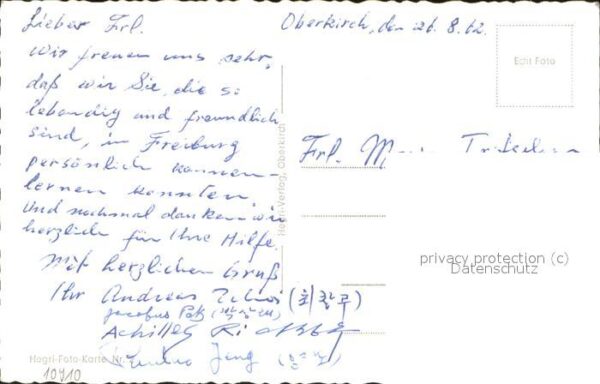 Lieber Frl.
Oberkirch, den 26. 8. 62.
wir freuen uns sehr,
daß wir Sie, die so
lebendig und freundlich
sind, in Freiburg
persönlich kennen-
lernen konnten.
Und nochmal danken wir
herzlich für Ihre Hilfe.
Mit herzlichen Gruß
Ihr Andreas
Jacobus
Achilles Ri
Jung
Echt Foto
Frl.
Hogri-Verlag, Oberkirch
privacy protection (c)
Datenschutz
Hogri-Foto-Karte Nr.
10410